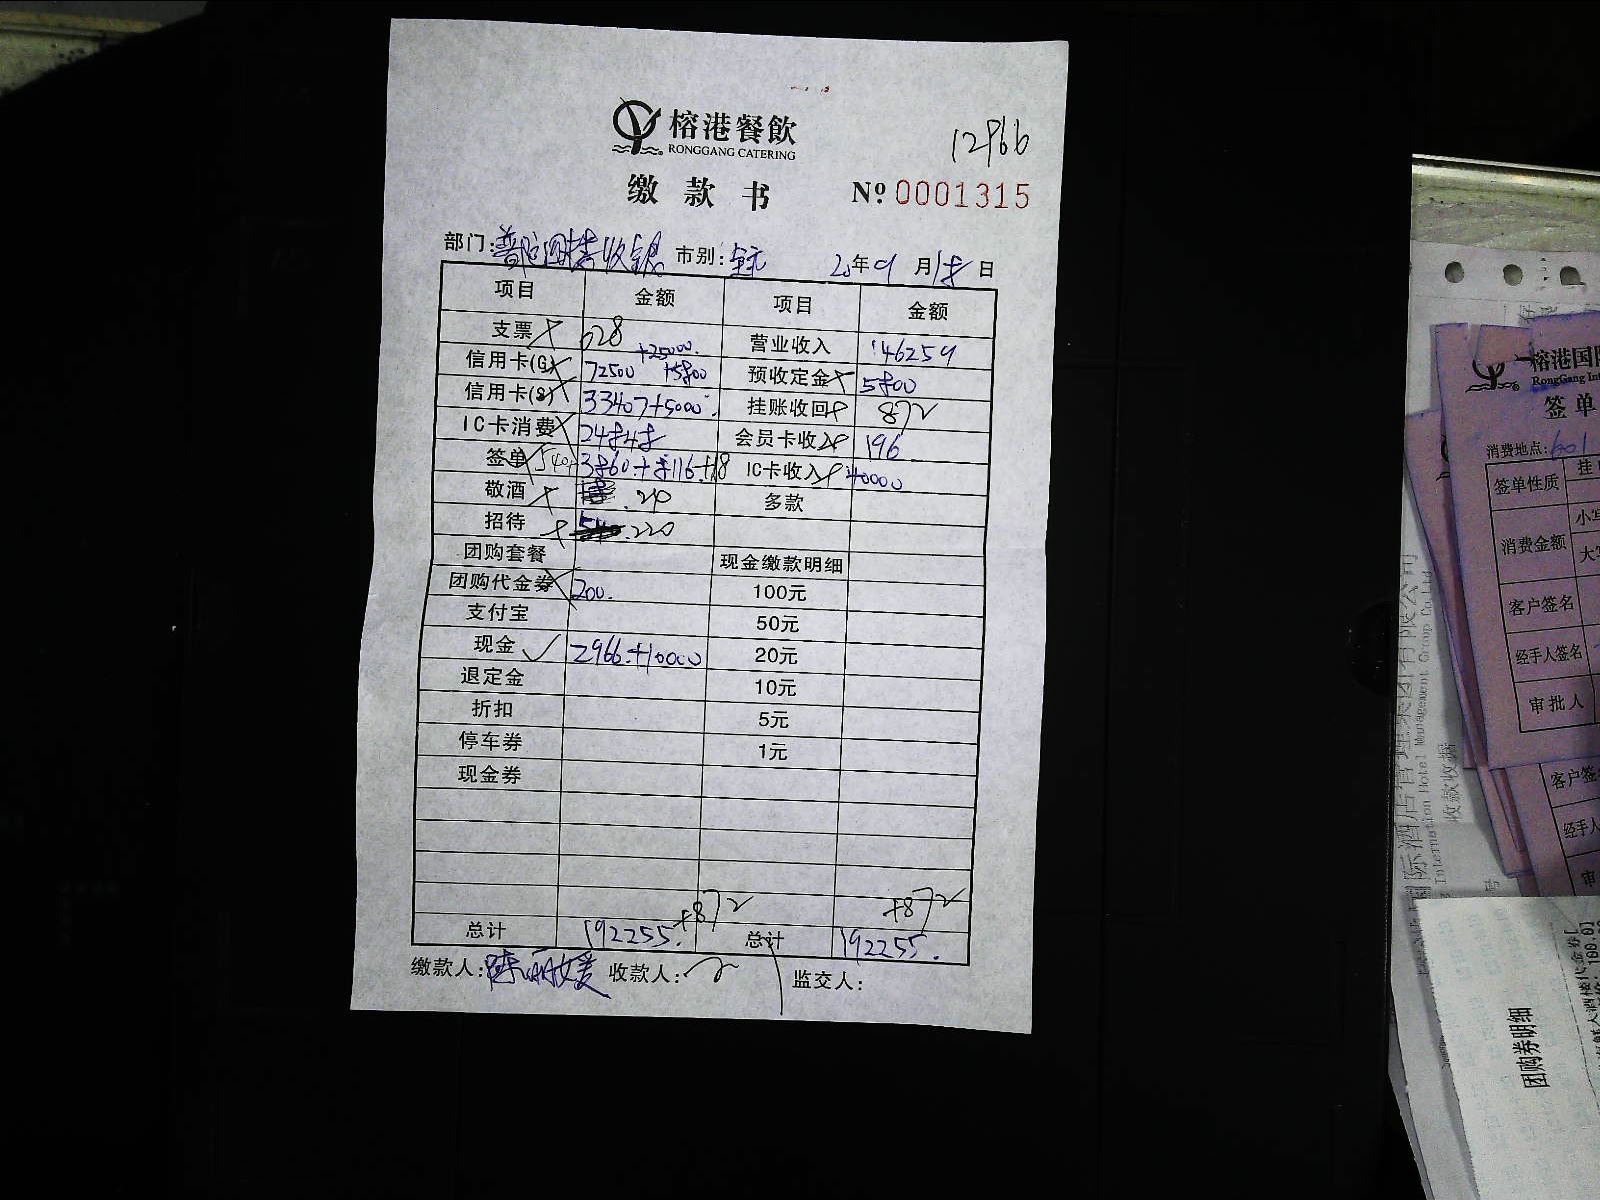 榕港餐飲
RONGGANG CATERING
12966
缴款书
Nº 0001315
部门: 收银 市别: 年 9 月 18 日
项目 金额 项目 金额
支票 628 营业收入 146259
信用卡(G) 72500 +25000. +5800 预收定金 5800
信用卡(S) 33407+5000. 挂账收回 872
IC卡消费 24848 会员卡收入 196
签单 540+ 3860+8116.+18 IC卡收入 40000
敬酒 . 240 多款
招待 .220
团购套餐 现金缴款明细
团购代金券 200. 100元
支付宝 50元
现金 2966.+10000 20元
退定金 10元
折扣 5元
停车券 1元
现金券
+872 +872
总计 192255. 总计 192255.
缴款人:陈丽媛 收款人: 监交人:
榕港国
RongGang Int
签单
消费地点: 601
签单性质 挂
消费金额 小写
大写
客户签名
经手人签名
审批人
客户签
经手人
审
际酒店管理集团有限公司
International Hotel Management Group Co.Ltd
收款收据
号
团购券明细